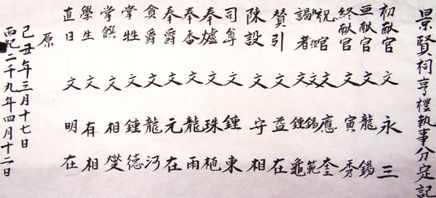 景賢祠享禮執事分定記
初献官 文 永 三
亞献官 文 龍 錫
終献官 文 寅 秀
祝官 文 應 奎
文 錫 範
謁者 文 鍾 龜
贊引 文 益 相
陳設 文 字 在
司尊 文 鍾 東
奉爐 文 珠 植
奉香 文 龍 雨
奉爵 文 元 在
奠爵 文 龍 河
掌牲 文 鍾 德
掌饌 文 相 燮
學生 文 有 相
直日 文 明 在
原
己丑年三月十七日
西紀二千九年四月十二日